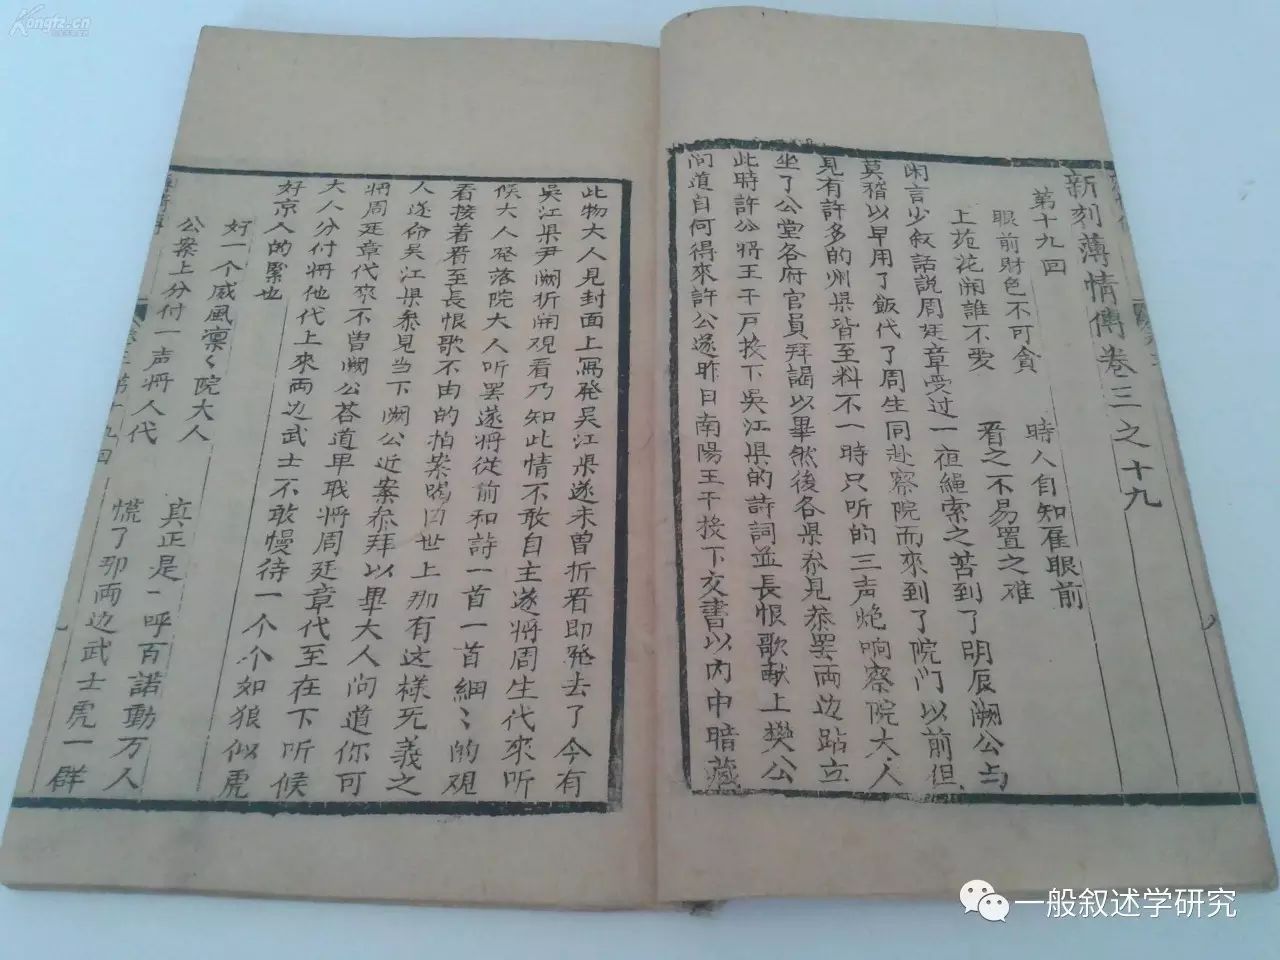 新刻薄情傳卷三之十九
第十九回
眼前財色不可貪 時人自知在眼前
上苑花開誰不愛 看之不易置之难
闲言少叙話説周廷章受过一夜繩索之苦到了明辰阙公与
莫稽以早用了飯代了周生同赴察院而來到了院门以前但
見有許多的州県皆至料不一時只听的三声炮响察院大人
坐了公堂各府官員拜謁以畢然後各県叅見恭罢两边跕立
此時許公将王千戸接下吳江県的詩詞並長恨歌献上樊公
问道自何得來許公遂昨日南陽王千接下文書以内中暗藏
此物大人見封面上寫発吴江県遂未曾折看即発去了今有
吳江県尹阙折開覌看乃知此情不敢自主遂将周生代來听
候大人発落院大人听罢遂将從前和詩一首一首細〻的覌
看接着看至長恨歌不由的拍案喝曰世上那有这樣无義之
人遂命吴江県叅見当下阙公近案叅拜以畢大人问道你可
将周廷章代來不曾阙公荅道早戝将周廷章代至在下听候
大人分付将他代上來两边武士不敢慢待一个个如狼似虎
好京人的緊也
好一个威風凛〻院大人 真正是一呼百諾動万人
公案上分付一声将人代 慌了那两边武士虎一群
Kongfz.cn
一般叙述学研究